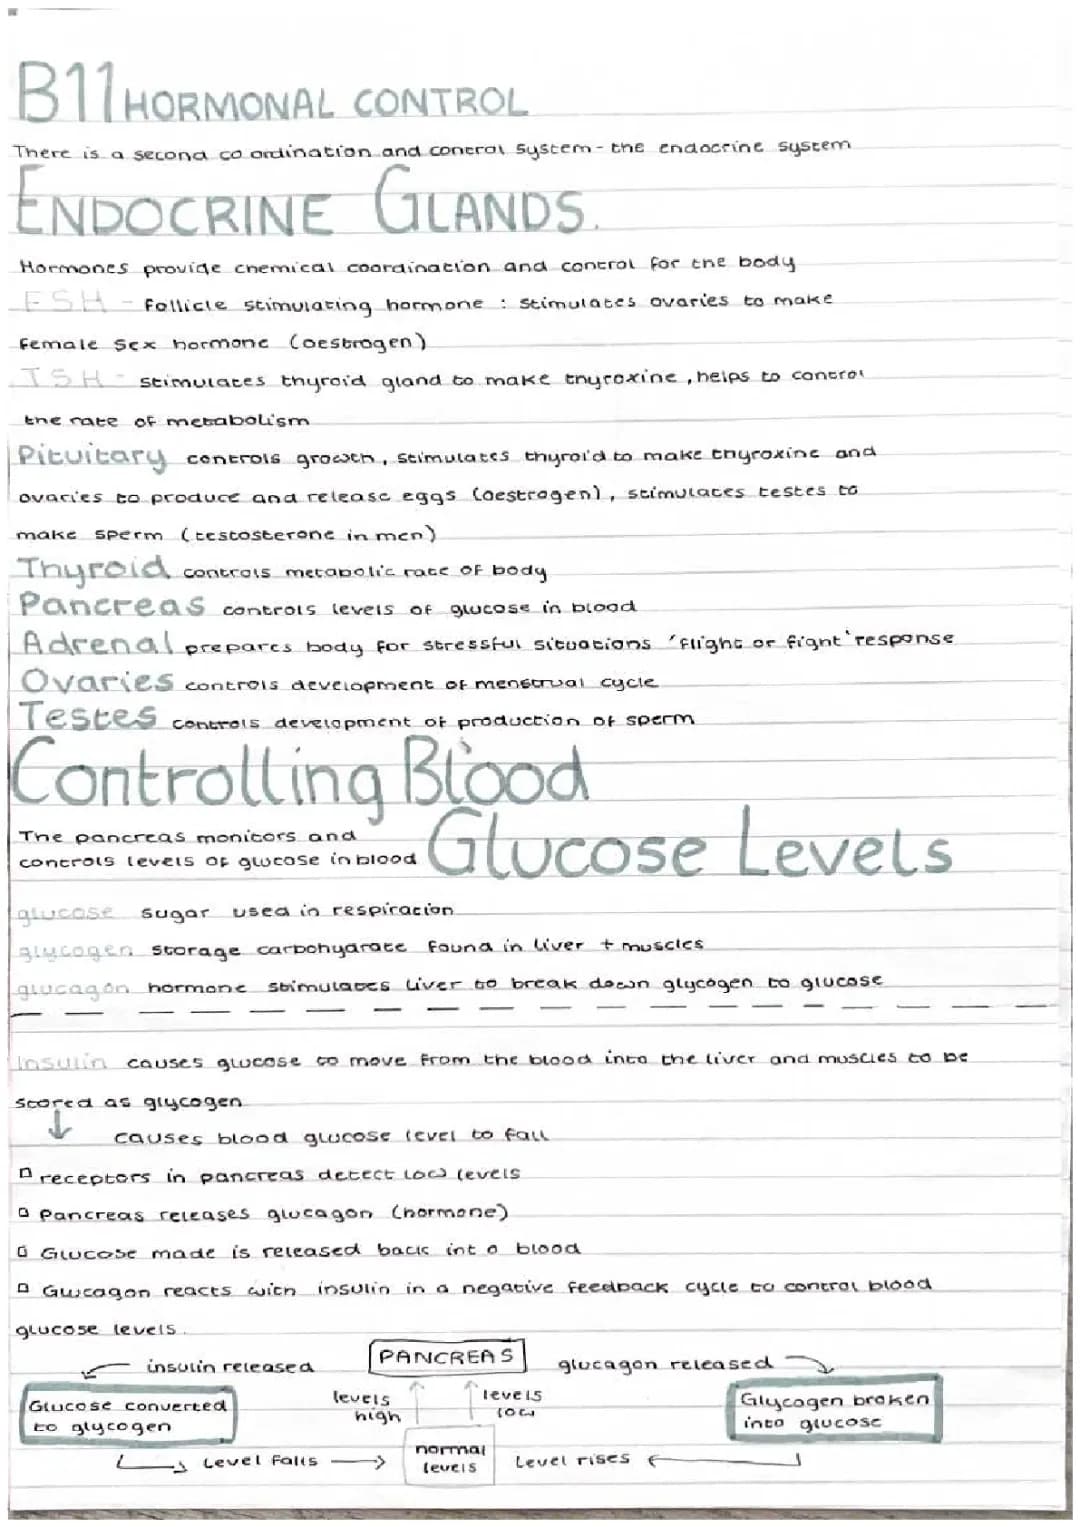 B11 HORMONAL CONTROL
There is a second co ordination and control system - the endocrine system
ENDOCRINE GLANDS.
Hormones provide chemical coordination and control for the body
FSH - Follicle stimulating hormone : stimulates ovaries to make
female sex hormone (oestrogen)
TSH - stimulates thyroid gland to make thyroxine, helps to control
the rate of metabolism
Pituitary controls growth, stimulates thyroid to make thyroxine and
ovaries to produce and release eggs (oestrogen), stimulates testes to
make sperm (testosterone in men)
Thyroid controls metabolic rate of body
Pancreas controls levels of glucose in blood
Adrenal prepares body for stressful situations 'flight or fight' response
Ovaries controls development of menstrual cycle
Testes controls development of production of sperm
Controlling Blood
Glucose Levels
The pancreas monitors and
controls levels of glucose in blood
glucose sugar used in respiration
glycogen storage carbohydrate found in liver + muscles
glucagon hormone stimulates liver to break down glycogen to glucose
Insulin causes glucose to move from the blood into the liver and muscles to be
stored as glycogen
↓ causes blood glucose level to fall
▫ receptors in pancreas detect low levels
▫ Pancreas releases glucagon (hormone)
▫ Glucose made is released back into blood
▫ Glucagon reacts with insulin in a negative feedback cycle to control blood
glucose levels.
insulin released
PANCREAS
glucagon released
Glucose converted
to glycogen
levels
high
levels
low
Glycogen broken
into glucose
Level falls →
normal
levels
Level rises ←